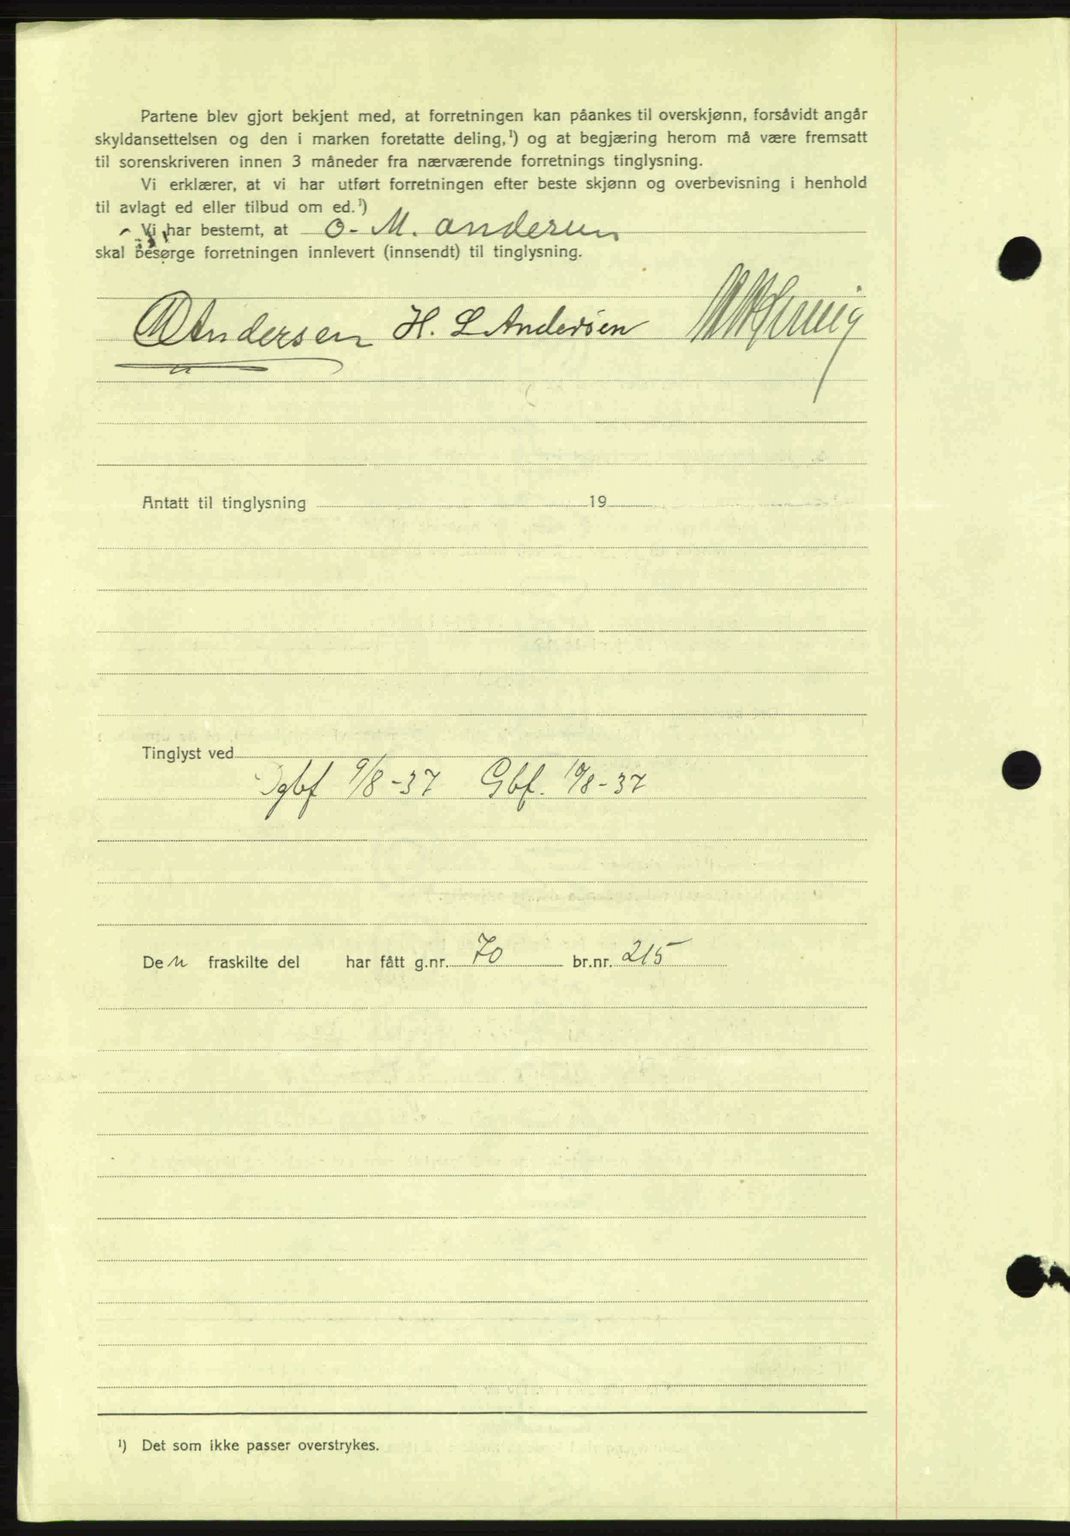 Partene blev gjort bekjent med, at forretningen kan påankes til overskjønn, forsåvidt angår
skyldansettelsen og den i marken foretatte deling,¹) og at begjæring herom må være fremsatt
til sorenskriveren innen 3 måneder fra nærværende forretnings tinglysning.
Vi erklærer, at vi har utført forretningen efter beste skjønn og overbevisning i henhold
til avlagt ed eller tilbud om ed.¹)
Vi har bestemt, at O. M. Andersen
skal besørge forretningen innlevert (innsendt) til tinglysning.
OM Andersen H. L Andersen
Antatt til tinglysning 19
Tinglyst ved
Dgbf 9/8-37 Gbf. 10/8-37
Den fraskilte del har fått g.nr. 70 br.nr. 215
¹) Det som ikke passer overstrykes.